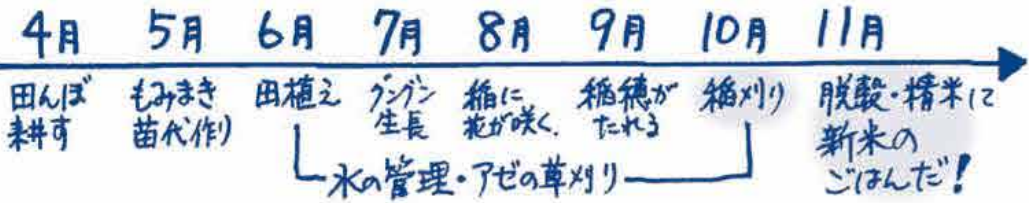 4月 5月 6月 7月 8月 9月 10月 11月
田んぼ
耕す
もみまき
苗代作り
田植え
グングン
生長
稲に
花が咲く.
稲穂が
たれる
稲刈り
脱穀・精米に
新米の
ごはんだ!
水の管理・アゼの草刈り